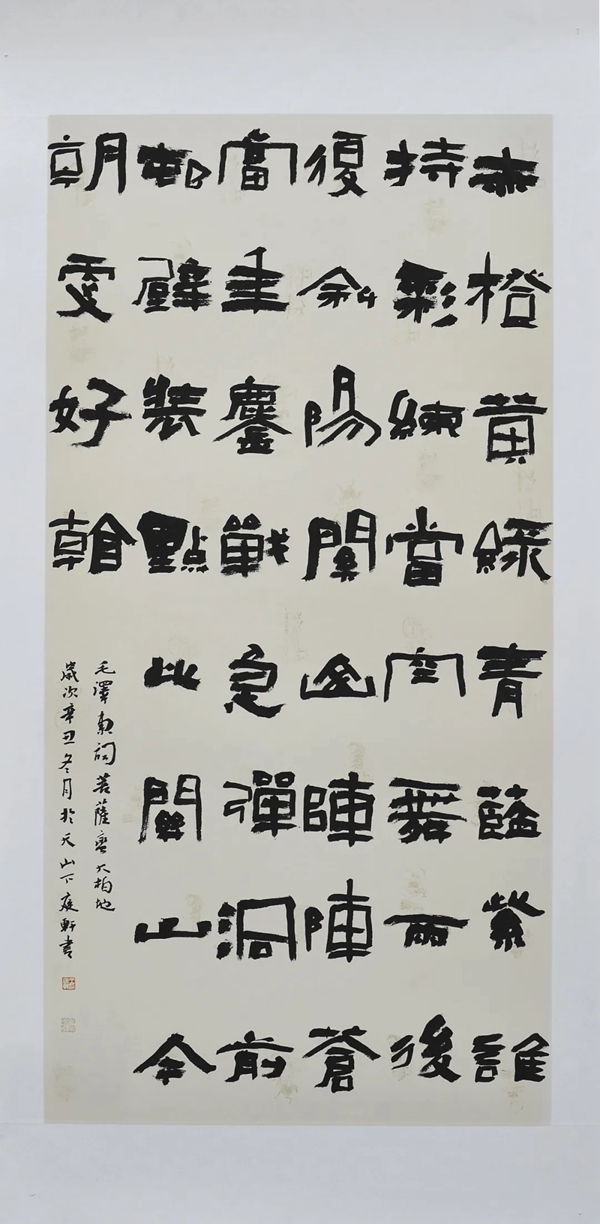 赤橙黃綠青藍紫誰
持彩練當空舞雨後
復斜陽關山陣陣蒼
當年鏖戰急彈洞前
邨壁裝點此關山今
朝更好看
毛澤東詞菩薩蠻大柏地
歲次辛丑冬月於天山下庭軒書